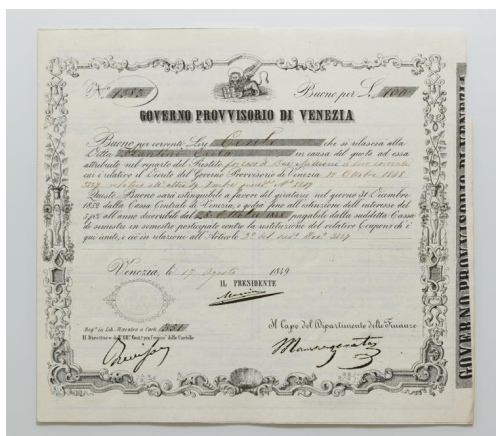 Nº 1383 Buono per L. 100
GOVERNO PROVVISORIO DI VENEZIA
Buono per correnti Lire Cento che si rilascia alla
Ditta Carlo in causa del quoto ad essa
attribuito nel riparto del Prestito di due correnti
cui è relativo il Decreto del Governo Provvisorio di Venezia 12 Ottobre 1848
Questo Buono sarà estinguibile a favore del giratario nel giorno 31 Dicembre
1852 dalla Cassa Centrale di Venezia, e godrà fino all'estinzione dell'interesse del
5 p% all'anno decorribile dal 25 Ottobre 1848 pagabili dalla suddetta Cassa
di semestre in semestre posticipato contro la restituzione del relativo Coupon ch'è
qui unito, e ciò in relazione all'Articolo 3º del
Venezia, li 17 Agosto 1849
IL PRESIDENTE
Regº in Lib. Maestro a Carte 351
Il Capo del Dipartimento delle Finanze
Il Direttore
GOVERNO PROVVISORIO DI VENEZIA